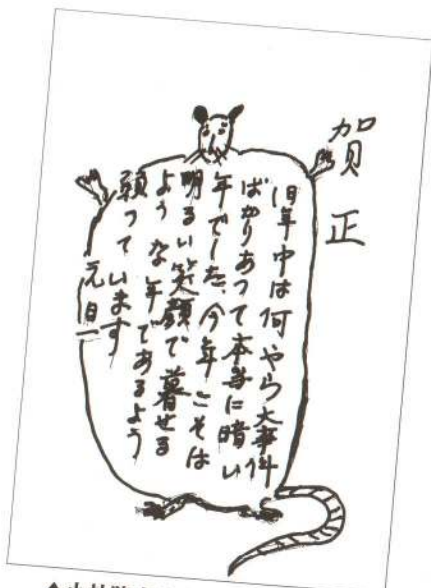 賀正
旧年中は何やら大事件
ばかりあって本当に暗い
年でした、今年こそは
明るい笑顔で暮せる
ような年であるよう
願っています
元旦